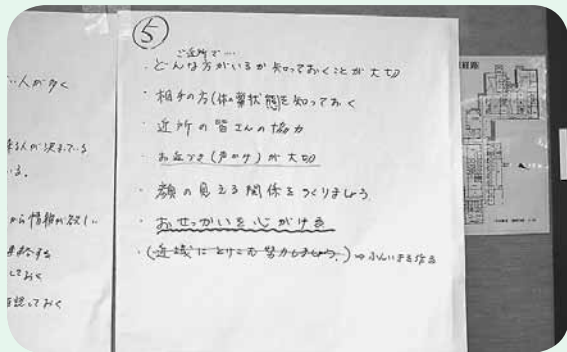 い人が多く
まる人が決まっている
いる。
から情報が欲しい
しておく
確認しておく
⑤
ご近所で…
・どんな方がいるか知っておくことが大切
・相手の方(体の業状態)を知っておく
・近所の皆さんの協力
・お互いさま(声かけ)が大切
・顔の見える関係をつくりましょう
・おせっかいを心がける
・(近域にとりこむ努力しましょう。)⇒ふんいきを作る
経路